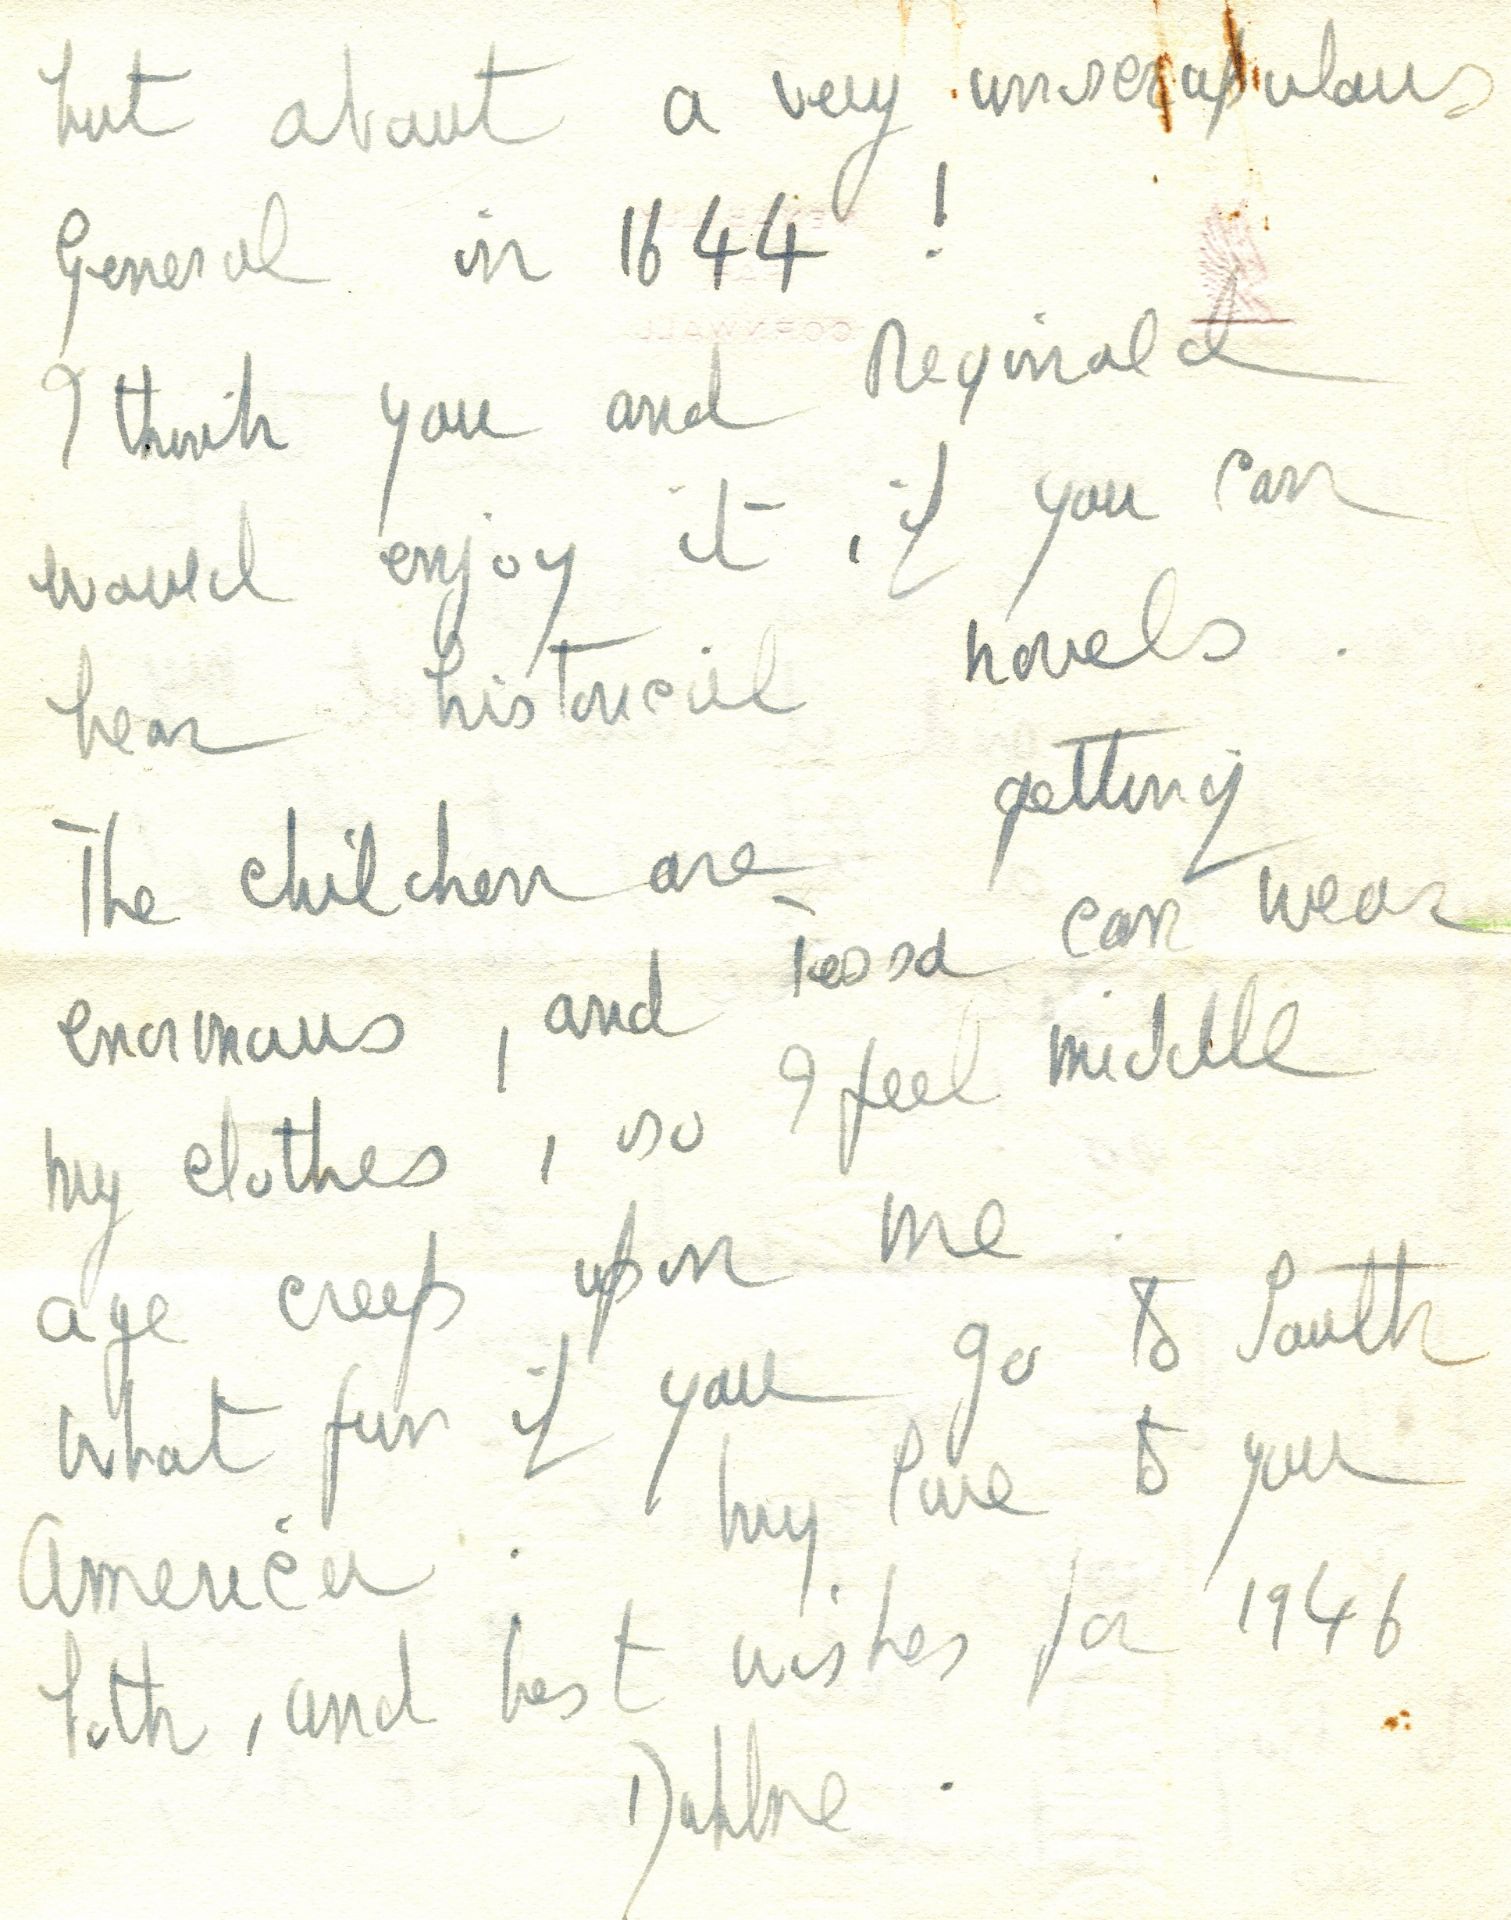 but about a very unscrupulous
General in 1644 !
I think you and Reginald
would enjoy it, if you can
bear historical novels.
The children are getting
enormous, and Tessa can wear
my clothes, so I feel middle
age creep upon me.
What fun if you go to South
America. My love to you
both, and best wishes for 1946
Daphne.
CORNWALL